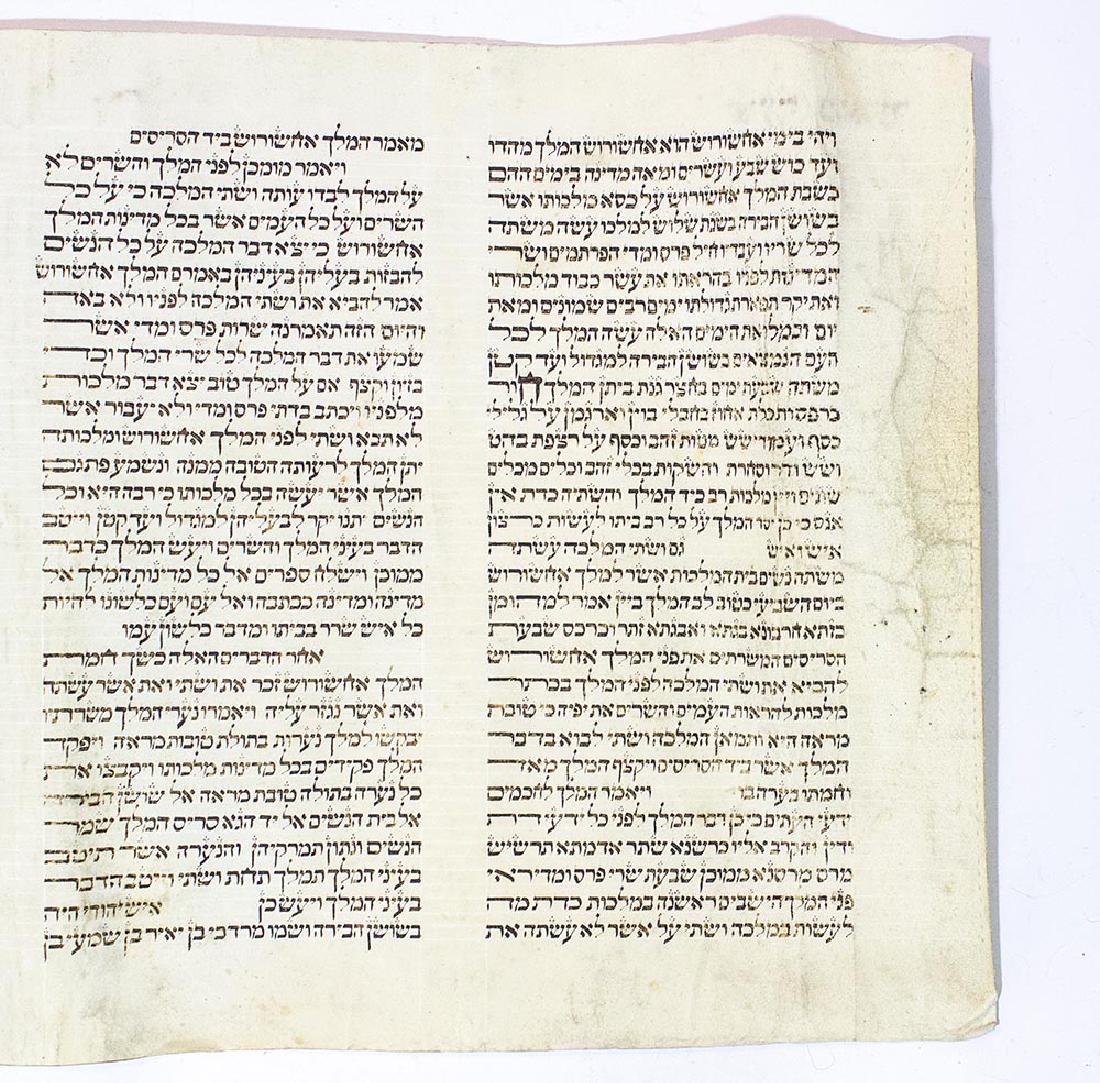 ויהי בימי אחשורוש הוא אחשורוש המלך מהדו
ועד כוש שבע ועשרים ומאה מדינה בימים ההם
כשבת המלך אחשורוש על כסא מלכותו אשר
בשושן הבירה בשנת שלוש למלכו עשה משתה
לכל שריו ועבדיו חיל פרס ומדי הפרתמים ושרי
המדינות לפניו בהראתו את עשר כבוד מלכותו
ואת יקר תפארת גדולתו ימים רבים שמונים ומאת
יום ובמלואת הימים האלה עשה המלך לכל
העם הנמצאים בשושן הבירה למגדול ועד קטן
משתה שבעת ימים בחצר גנת ביתן המלך חור
כרפס ותכלת אחוז בחבלי בוץ וארגמן על גלילי
כסף ועמודי שש מטות זהב וכסף על רצפת בהט
ושש ודר וסחרת והשקות בכלי זהב וכלים מכלים
שונים ויין מלכות רב כיד המלך והשתיה כדת אין
אנס כי כן יסד המלך על כל רב ביתו לעשות כרצון
איש ואיש גם ושתי המלכה עשתה
משתה נשים בית המלכות אשר למלך אחשורוש
ביום השביעי כטוב לב המלך ביין אמר למהומן
בזתא חרבונא בגתא ואבגתא זתר וכרכס שבעת
הסריסים המשרתים את פני המלך אחשורוש
להביא את ושתי המלכה לפני המלך בכתר
מלכות להראות העמים והשרים את יפיה כי טובת
מראה היא ותמאן המלכה ושתי לבוא בדבר
המלך אשר ביד הסריסים ויקצף המלך מאד
וחמתו בערה בו ויאמר המלך לחכמים
ידעי העתים כי כן דבר המלך לפני כל ידעי דת
ודין והקרב אליו כרשנא שתר אדמתא תרשיש
מרס מרסנא ממוכן שבעת שרי פרס ומדי ראי
פני המלך הישבים ראשנה במלכות כדת מה
לעשות במלכה ושתי על אשר לא עשתה את
מאמר המלך אחשורוש ביד הסריסים
ויאמר מומכן לפני המלך והשרים לא
על המלך לבדו עותה ושתי המלכה כי על כל
השרים ועל כל העמים אשר בכל מדינות המלך
אחשורוש כי יצא דבר המלכה על כל הנשים
להבזות בעליהן בעיניהן באמרם המלך אחשורוש
אמר להביא את ושתי המלכה לפניו ולא באה
והיום הזה תאמרנה שרות פרס ומדי אשר
שמעו את דבר המלכה לכל שרי המלך וכדי
בזיון וקצף אם על המלך טוב יצא דבר מלכות
מלפניו ויכתב בדתי פרס ומדי ולא יעבור אשר
לא תבא ושתי לפני המלך אחשורוש ומלכותה
יתן המלך לרעותה הטובה ממנה ונשמע פתגם
המלך אשר יעשה בכל מלכותו כי רבה היא וכל
הנשים יתנו יקר לבעליהן למגדול ועד קטן וייטב
הדבר בעיני המלך והשרים ויעש המלך כדבר
ממוכן וישלח ספרים אל כל מדינות המלך אל
מדינה ומדינה ככתבה ואל עם ועם כלשונו להיות
כל איש שרר בביתו ומדבר כלשון עמו
אחר הדברים האלה כשך חמת
המלך אחשורוש זכר את ושתי ואת אשר עשתה
ואת אשר נגזר עליה ויאמרו נערי המלך משרתיו
יבקשו למלך נערות בתולת טובות מראה ויפקד
המלך פקידים בכל מדינות מלכותו ויקבצו את
כל נערה בתולה טובת מראה אל שושן הבירה
אל בית הנשים אל יד הגא סריס המלך שמר
הנשים ונתון תמרקיהן והנערה אשר תיטב
בעיני המלך תמלך תחת ושתי וייטב הדבר
בעיני המלך ויעש כן איש יהודי היה
בשושן הבירה ושמו מרדכי בן יאיר בן שמעי בן